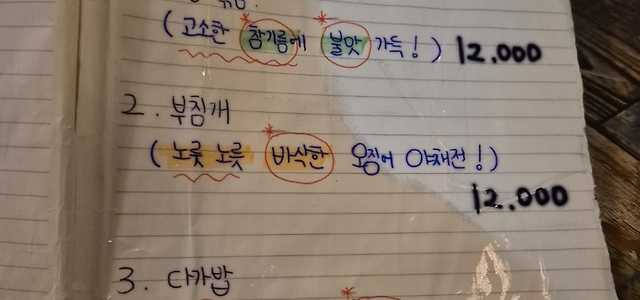 (고소한 참기름에 불맛 가득!) 12.000
2. 부침개
(노릇 노릇 바삭한 오징어 야채전!)
12.000
3. 다가밥